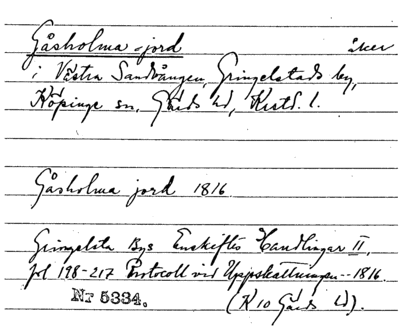 Gåsholma-jord åker
i Västra Sandvången, Gringelstads by,
Köpinge sn, Gärds hd, Krstd. l.
Gåsholma jord 1816
Gringelsta Bys Enskiftes Handlingar II,
fol 198-217 Protocoll vid Uppskattningen -- 1816.
Nr 5334. (K 10 Gärds hd).